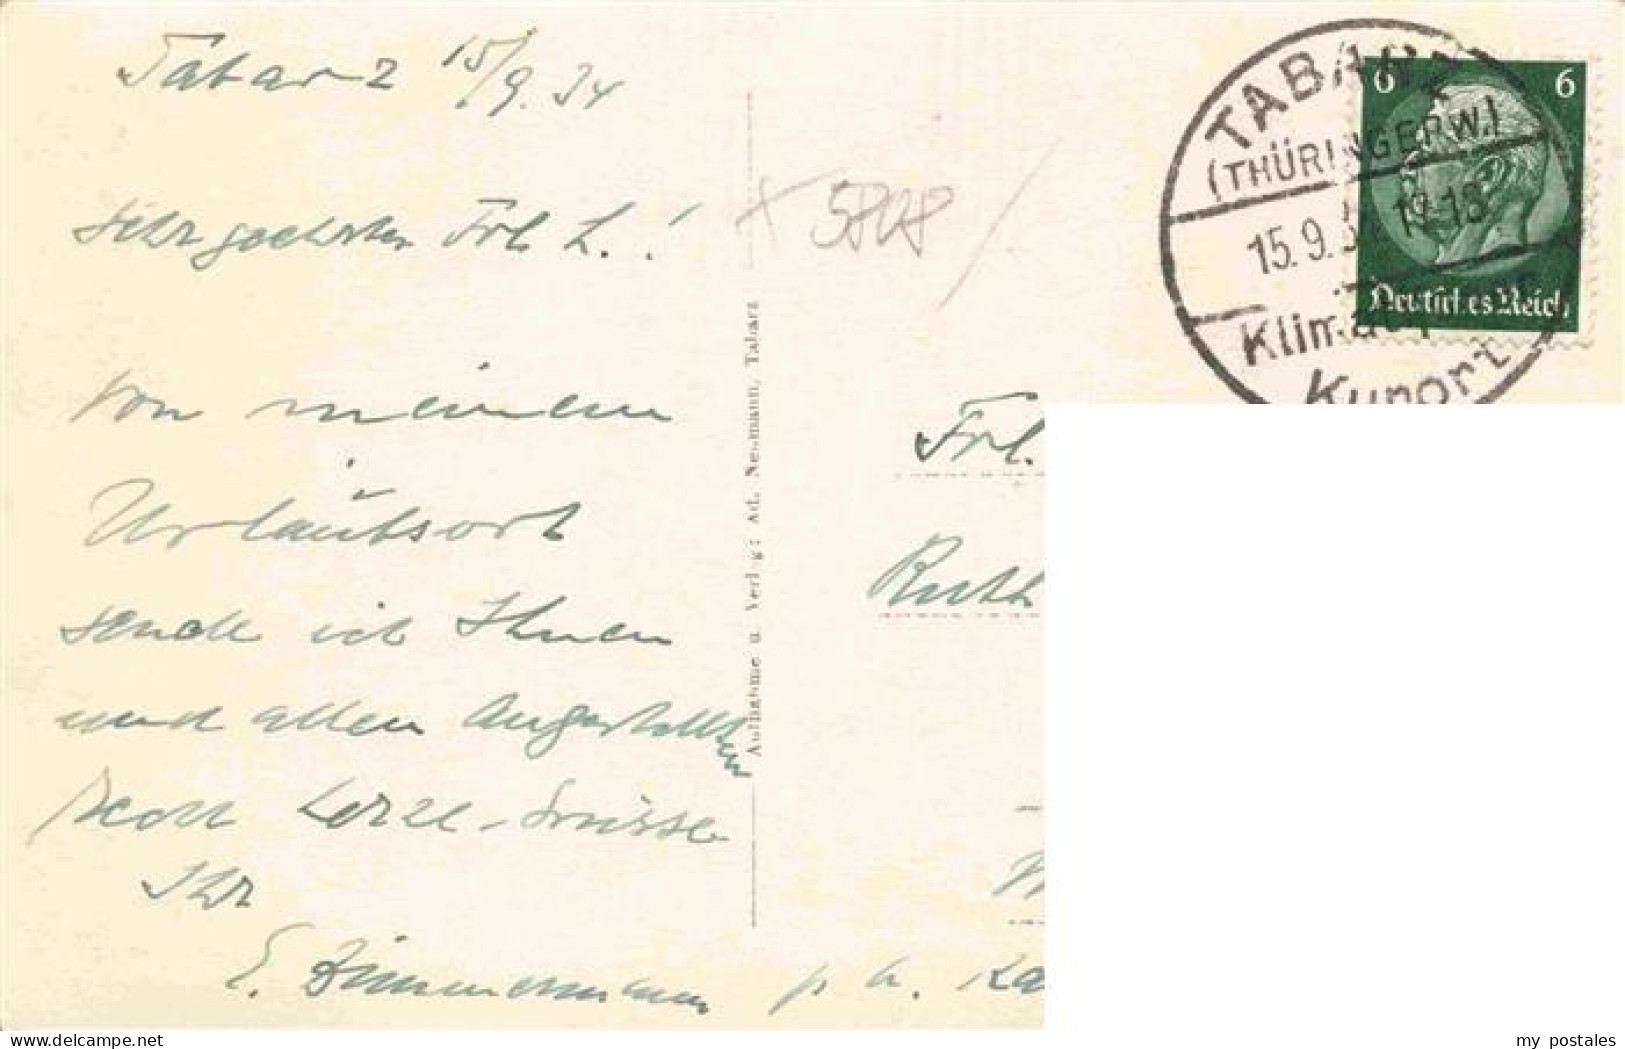 Tabarz 15/9.34
Sehr geehrtes Frl. L.!
Von meinem
Urlaubsort
sende ich Ihnen
und allen Angestellten
recht herzl. Grüsse
Ihr
E. Zimmermann
Aufnahme u. Verlag: Ad. Neumann, Tabarz
TABARZ
(THÜRINGERW.)
15.9.34 17-18
Klimat.
Kurort
6 6
Deutsches Reich
Frl.
Ruth
my postales